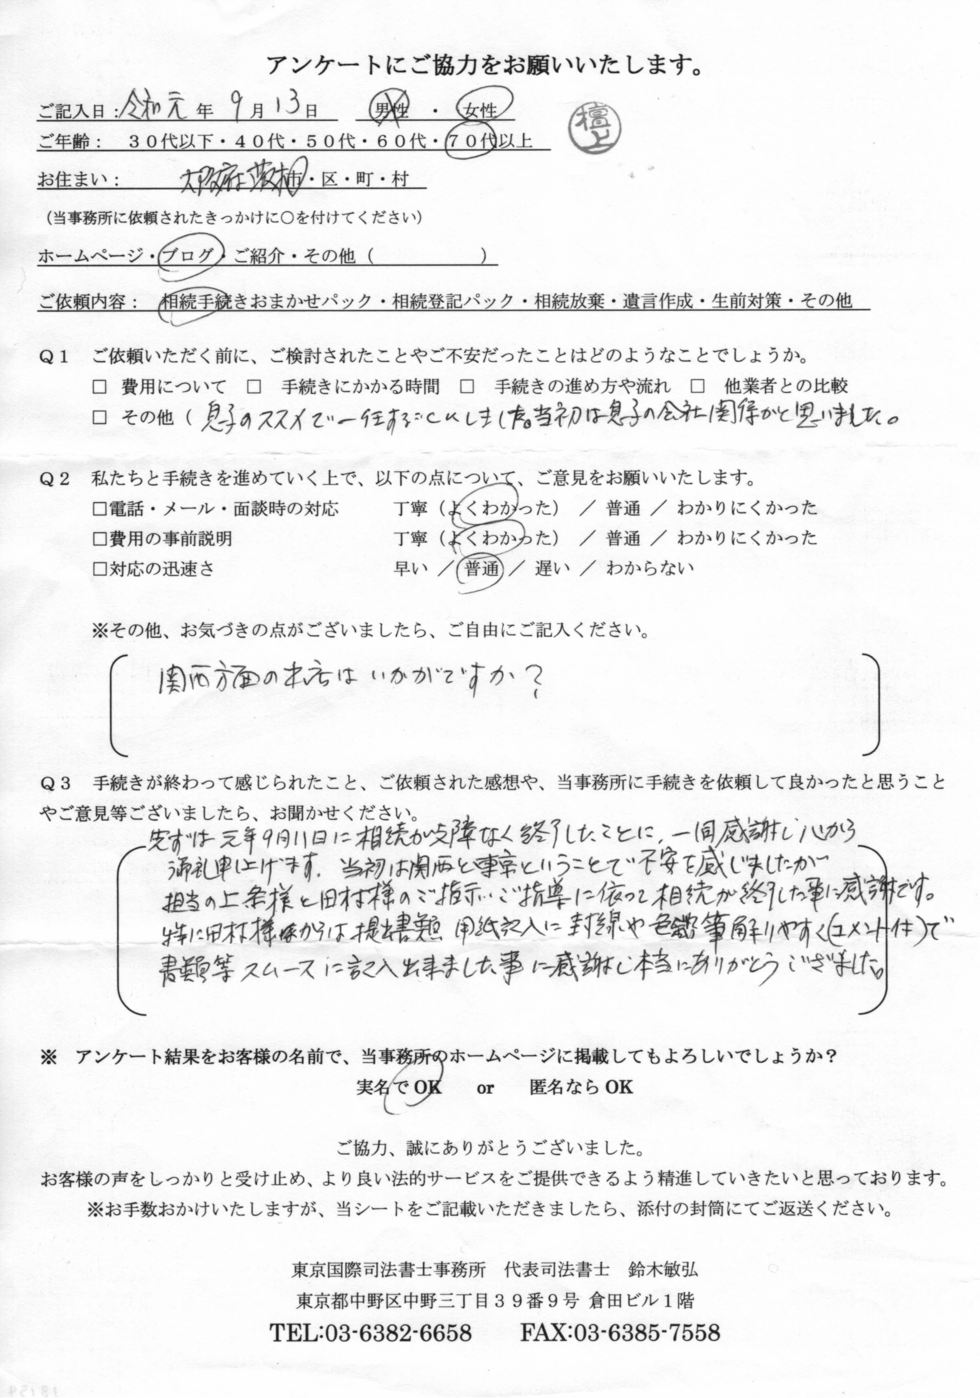 アンケートにご協力をお願いいたします。
ご記入日：令和元年 9月13日 男性 ・ 女性
檀上
ご年齢： 30代以下・40代・50代・60代・70代以上
お住まい： 大阪府 市・区・町・村
（当事務所に依頼されたきっかけに○を付けてください）
ホームページ・ブログ・ご紹介・その他（ ）
ご依頼内容： 相続手続きおまかせパック・相続登記パック・相続放棄・遺言作成・生前対策・その他
Q1 ご依頼いただく前に、ご検討されたことやご不安だったことはどのようなことでしょうか。
□ 費用について □ 手続きにかかる時間 □ 手続きの進め方や流れ □ 他業者との比較
□ その他（息子のススメで一任することにしました。当初は息子の会社関係かと思いました。
Q2 私たちと手続きを進めていく上で、以下の点について、ご意見をお願いいたします。
□電話・メール・面談時の対応 丁寧（よくわかった）／ 普通 ／ わかりにくかった
□費用の事前説明 丁寧（よくわかった）／ 普通 ／ わかりにくかった
□対応の迅速さ 早い ／ 普通 ／ 遅い ／ わからない
※その他、お気づきの点がございましたら、ご自由にご記入ください。
関西方面の本店はいかがですか?
Q3 手続きが終わって感じられたこと、ご依頼された感想や、当事務所に手続きを依頼して良かったと思うこと
やご意見等ございましたら、お聞かせください。
先ずは元年9月11日に相続が支障なく終了したことに、一同感謝し心から
御礼申上げます。当初は関西と東京ということで不安を感じましたが
担当の上条様と田村様のご指示・ご指導に依って相続が終了した事に感謝です。
特に田村様からは提出書類 用紙記入に 解りやすく(コメント付)で
書類等スムースに記入出来ました事に感謝し本当にありがとうございました。
※ アンケート結果をお客様の名前で、当事務所のホームページに掲載してもよろしいでしょうか？
実名でOK or 匿名ならOK
ご協力、誠にありがとうございました。
お客様の声をしっかりと受け止め、より良い法的サービスをご提供できるよう精進していきたいと思っております。
※お手数おかけいたしますが、当シートをご記載いただきましたら、添付の封筒にてご返送ください。
東京国際司法書士事務所 代表司法書士 鈴木敏弘
東京都中野区中野三丁目39番9号 倉田ビル1階
TEL:03-6382-6658 FAX:03-6385-7558